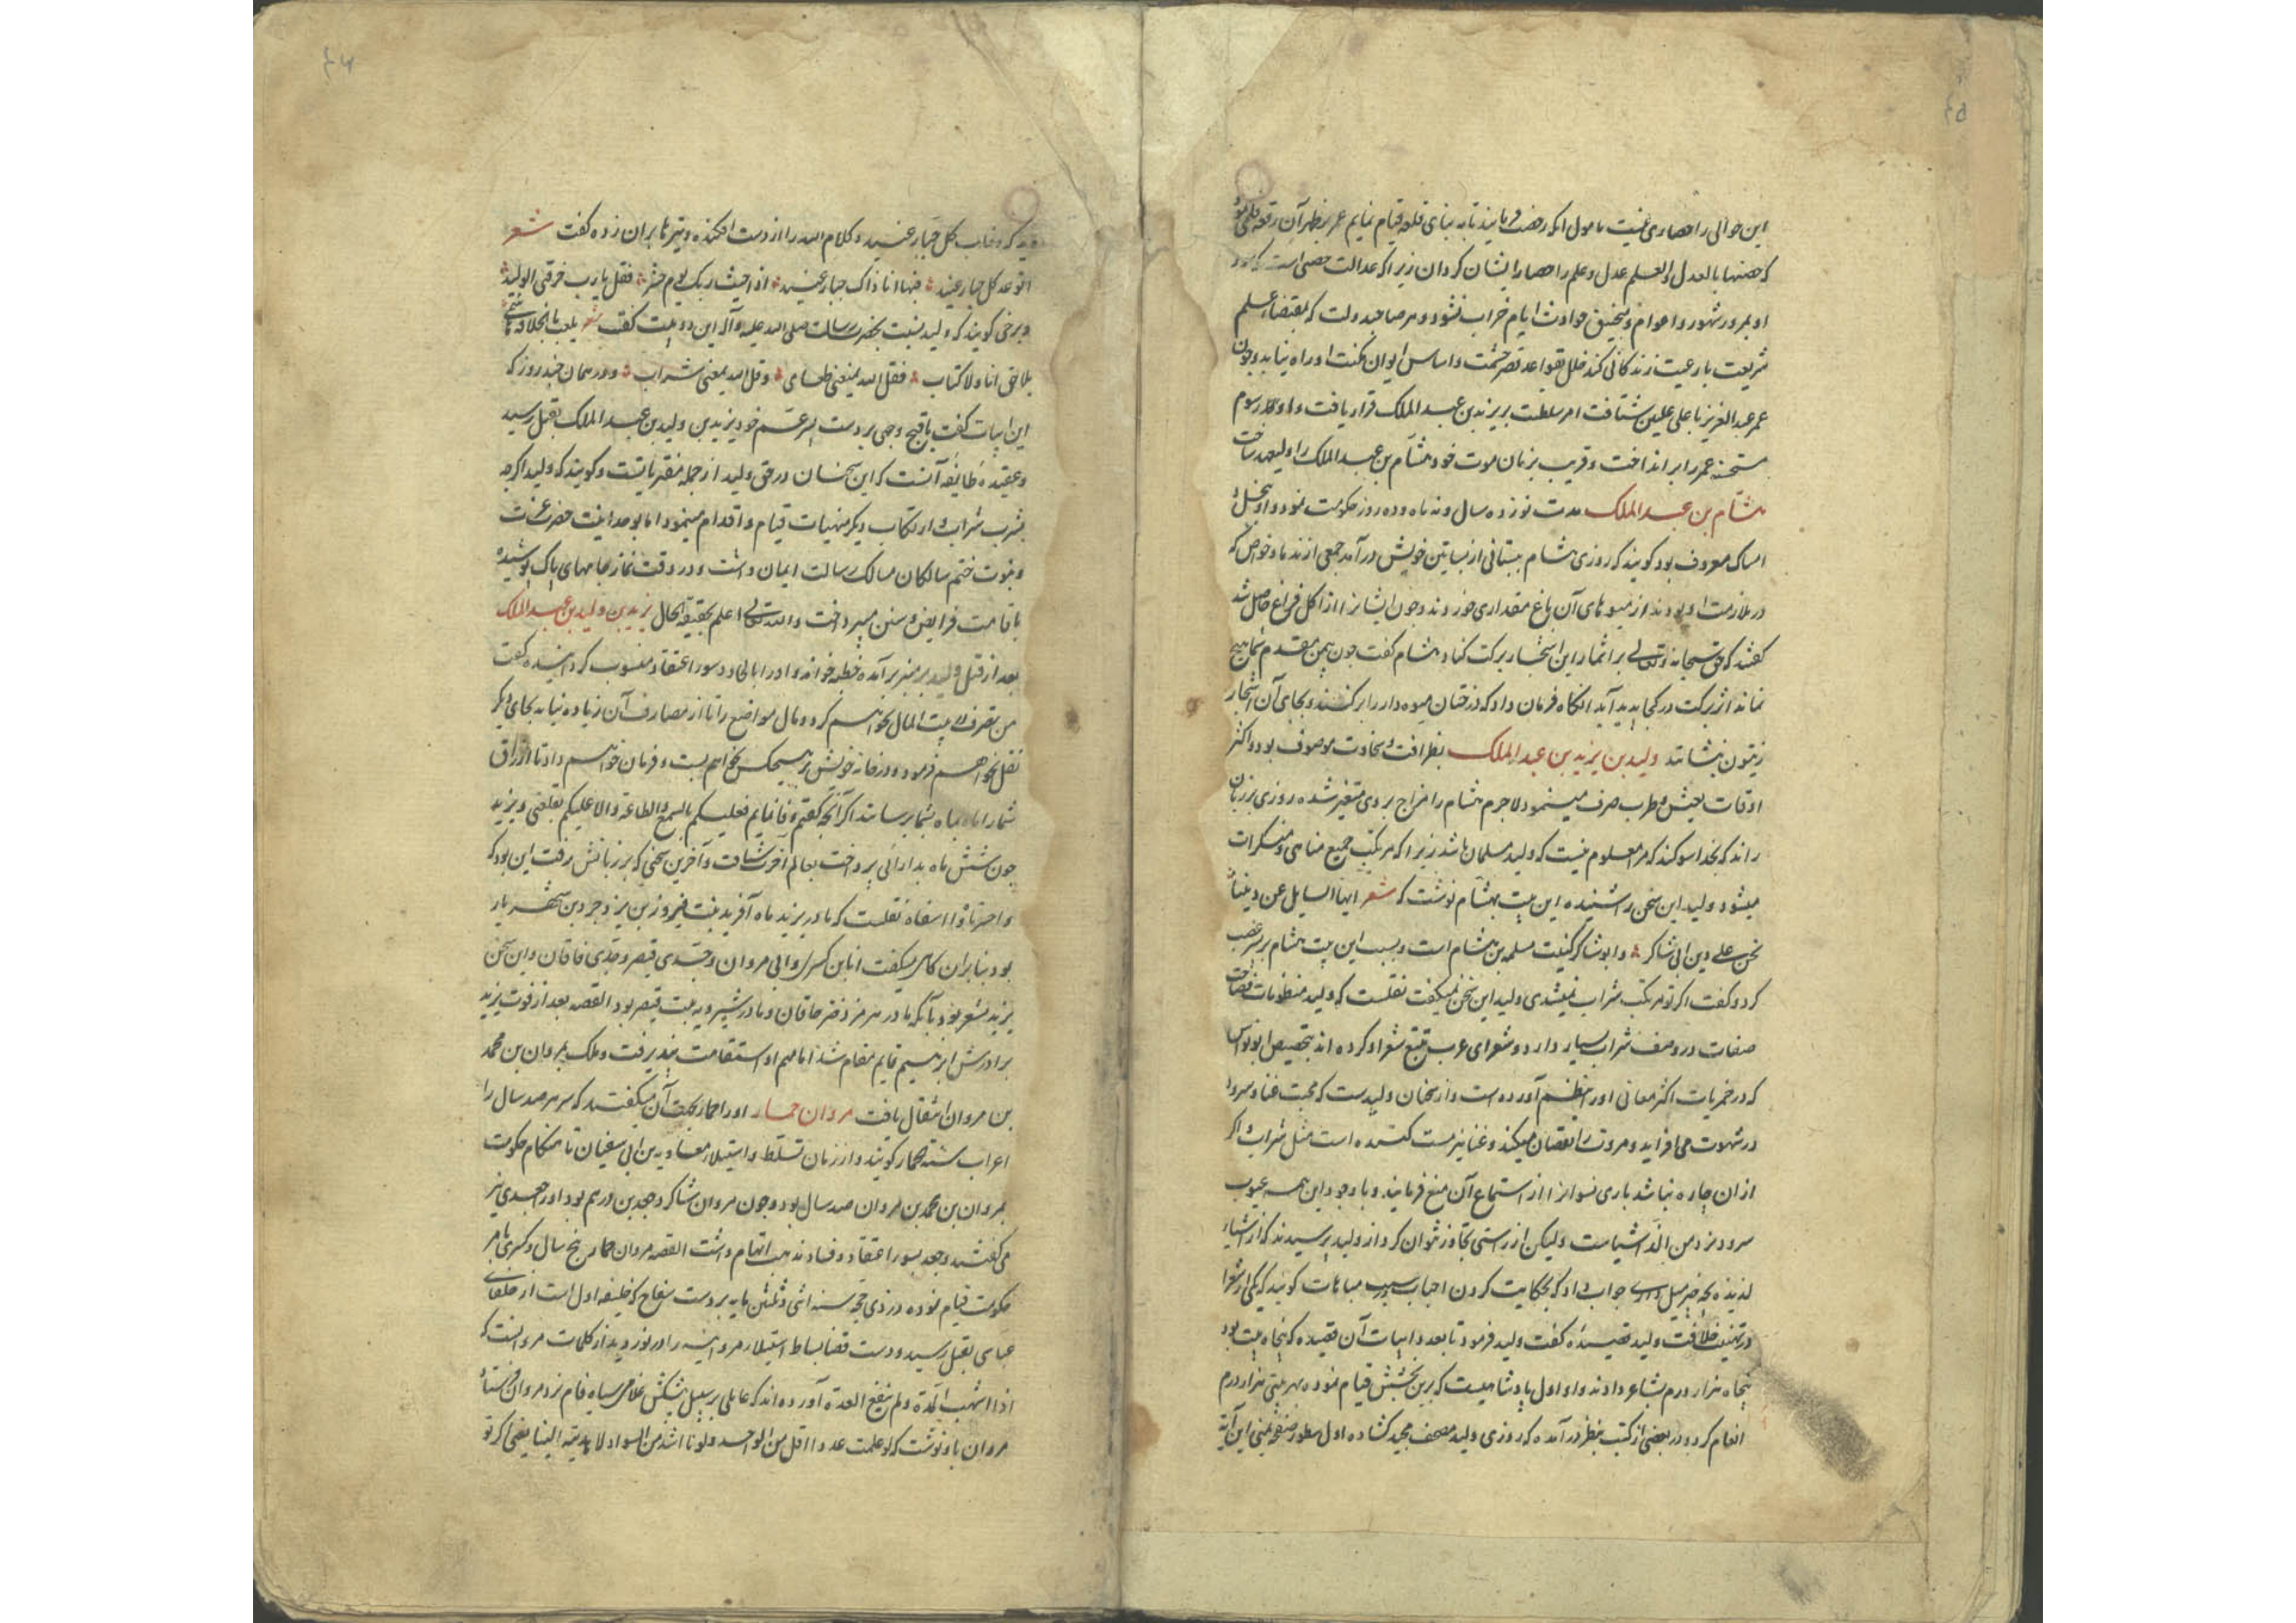 این حوالی را حصاری نیست مامول آنکه رخصت فرمایند تا به بنای قلعه قیام نمایم عمر بر ظهر آن رقعه قلمی نمود
که حصنها بالعدل والعلم عدل و علم را حصار ایشان کردان زیرا که عدالت حصنی است که
او بمرور شهور و اعوام و منجنیق حوادث ایام خراب نشود و هر صاحبدولت که بمقتضاء علم
شریعت با رعیت زندکانی کند خلل بقواعد قصر حشمت و اساس ایوان مکنت او راه نیابد و چون
عمر عبد العزیز با علی علیین شتافت امر سلطنت بر یزید بن عبد الملک قرار یافت و او رسوم
مستحسنه عمر را برانداخت و قریب بزمان موت خود هشام بن عبد الملک را ولیعهد ساخت
هشام بن عبد الملک مدت نوزده سال و نه ماه و ده روز حکومت نمود و او ببخل و
امساک معروف بود کویند که روزی هشام ببستانی از بساتین خویش درآمد جمعی از ندما و خواص که
در ملازمت او بودند از میوهای آن باغ مقداری خوردند و چون ایشانرا از اکل فراغ حاصل شد
کفتند که حق سبحانه و تعالی بر اثمار این اشجار برکت کناد هشام کفت چون بیمن مقدم شما هیچ
نماند اثر برکت در کجا پدید آید آنکاه فرمان داد که درختان میوه دار را بر کنند و بجای آن اشجار
زیتون بنشانند ولید بن یزید بن عبد الملک بظرافت و سخاوت موصوف بود و اکثر
اوقات بعیش و طرب صرف مینمود لاجرم هشام را مزاج بر وی متغیر شده روزی بر زبان
راند که بخدا سوکند که مرا معلوم نیست که ولید مسلمان باشد زیرا که مرتکب جمیع مناهی و منکرات
میشود ولید این سخن را شنیده این بیت بهشام نوشت که شعر ایها السایل عن دیننا
نحن علی دین ابی شاکر و ابو شاکر کنیت مسلمه بن هشام است و بسبب این بیت هشام بر پسر غضب
کرد و کفت اکر تو مرتکب شراب نمیشدی ولید این سخن نمیکفت نقلست که ولید منظومات فصاحت
صفات در وصف شراب بسیار دارد و شعرای عرب تتبع شعر او کرده اند بتخصیص ابو نواس
که در خمریات اکثر معانی او را بنظم آورده است و از سخنان ولیدست که محبت غنا و سرود
در شهوت می افزاید و مروت را نقصان میکند و غنا نیز مست کننده است مثل شراب اکر
از ان چاره نباشد باری نسوانرا از استماع آن منع فرمایند و با وجود این همه عیوب
سرود نزد من الذ اشیاست ولیکن از راستی تجاوز نتوان کرد از ولید پرسیدند که از اشیاء
لذیذه بچه چیز میل داری جواب داد که بحکایت کردن احباب مباهات کویند که یکی از شعرا
در تهنیت خلافت ولید قصیده کفت ولید فرمود تا بعدد ابیات آن قصیده که پنجاه بیت بود
پنجاه هزار درم بشاعر دادند و او اول پادشاهیست که برین بخشش قیام نموده بهر بیتی هزار درم
انعام کرد و در بعضی از کتب بنظر درآمده که روزی ولید مصحف مجید کشاده اول سطور صفحه یمنی این آیة
دید که و خاب کل جبار عنید و کلام الله را از دست افکنده و تیرها بران زده کفت شعر
اتوعد کل جبار عنید فها انا ذاک جبار عنید اذا جئت ربک یوم حشر فقل یارب خرقنی الولید
و برخی کویند که ولید نسبت بحضرت رسالت صلی الله علیه وآله این دو بیت کفت شعر یلعب بالخلافة هاشمی
بلا حق اتاه ولا کتاب فقل لله یمنعنی طعامی و قل لله یمنعنی شراب و در همان چند روز که
این ابیات کفت باقبح وجهی بر دست پسر عم خود یزید بن ولید بن عبد الملک بقتل رسید
و عقیده طایفه آنست که این سخنان در حق ولید از جمله مفتریاتست و کویند که ولید اکرچه
بشرب شراب و ارتکاب دیکر منهیات قیام و اقدام مینمود اما بوحدانیت حضرت عزت
و نبوت ختم سالکان مسالک رسالت ایمان داشت و در وقت نماز جامهای پاک پوشیده
باقامت فرایض و سنن میپرداخت والله تعالی اعلم بحقیقة الحال یزید بن ولید بن عبد الملک
بعد از قتل ولید بر منبر برآمده خطبه خواند و او را بالحاد و سوء اعتقاد منسوب کردانیده کفت
من تصرف در بیت المال نخواهم کرد و مال مواضع را تا از مصارف آن زیاده نیاید بجای دیکر
نقل نخواهم فرمود و در خانه خویش بر هیچکس نخواهم بست و فرمان خواهم داد تا ارزاق
شما را ماه بماه بشما برسانند اکر آنچه کفتم وفا نمایم فعلیکم بالسمع والطاعة و الا علیکم بقلعتی و یزید
چون شش ماه بدارائی پرداخت بعالم آخرت شتافت و آخرین سخنی که بر زبانش رفت این بود که
واحسرتاه وا اسفاه نقلست که مادر یزید ماه آفرید بنت فیروز بن یزدجرد بن شهریار
بود بنا بران کاه میکفت انا ابن کسری و ابی مروان و جدی قیصر و جدی خاقان و این سخن
یزید مشعر بود بآنکه مادر هرمز دختر خاقان و مادر شیرویه بنت قیصر بود القصه بعد از فوت یزید
برادرش ابرهیم قایم مقام شد اما مهم او استقامت نپذیرفت و ملک بمروان بن محمد
بن مروان انتقال یافت مروان حمار او را حمار بجهت آن میکفتند که سر هر صد سال را
اعراب سنة الحمار کویند و از زمان تسلط و استیلاء معاویه بن ابی سفیان تا هنکام حکومت
مروان بن محمد بن مروان صد سال بود و چون مروان شاکرد جعد بن درهم بود او را جعدی نیز
می کفتند و جعد بسوء اعتقاد و فساد مذهب اتهام داشت القصه مروان حمار پنج سال و کسری بامر
حکومت قیام نموده در ذی حجه سنه اثنی و ثلثین مایه بر دست سفاح که خلیفه اول است از خلفای
عباسی بقتل رسید و دست قضا بساط استیلاء مروانیه را در نوردید از کلمات مروانست که
اذا انتهت المدة لم ینفع العدة آورده اند که عاملی بر سبیل پیشکش غلامی سیاه فام نزد مروان فرستاد
مروان باو نوشت که لو علمت عددا اقل من الواحد ولونا اشد من السواد لاهدیته الینا یعنی اکر تو